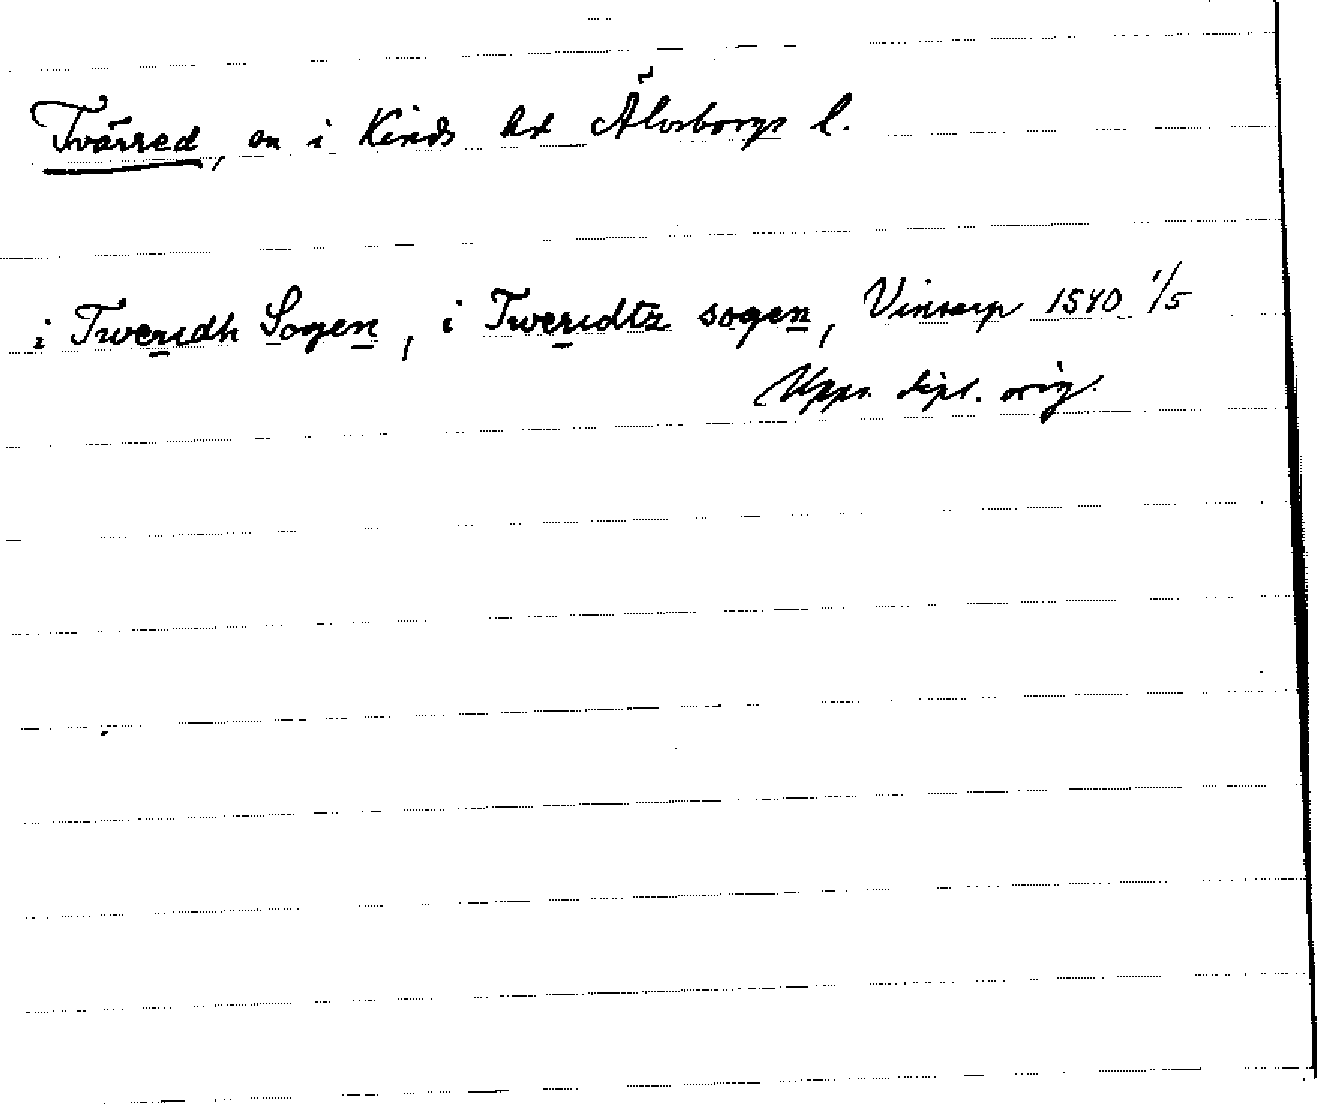 Tvärred, sn i Kinds hd Älvsborgs l.
i Tweridh Sogen, i Tweridtz sogen, Vinsarp 1540 1/5
Upps. dipl. orig.